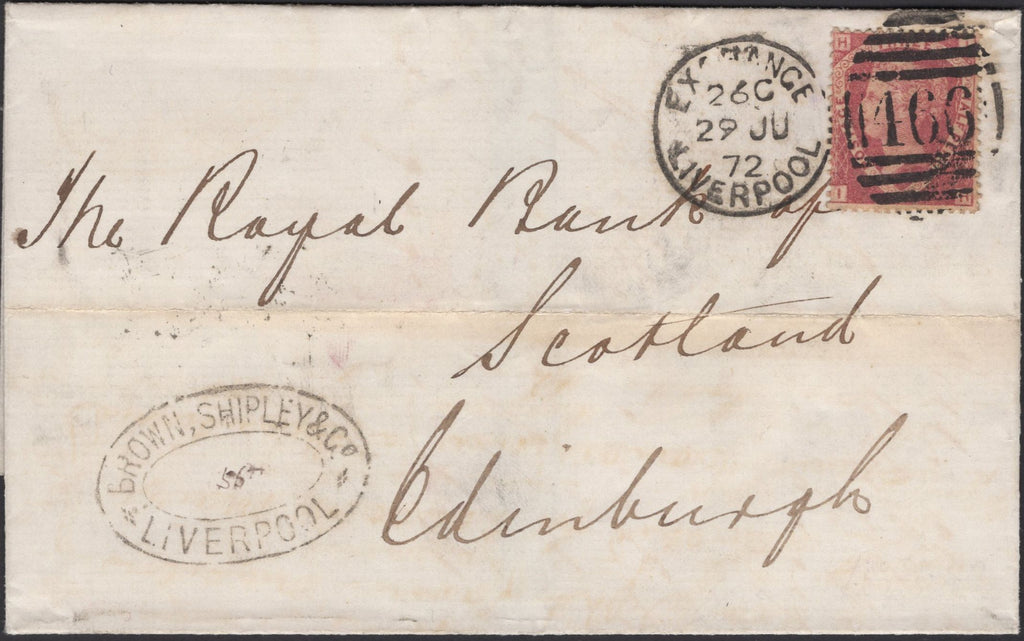 EXCHANGE
26C
29 JU
72
LIVERPOOL
466
H
I
E
The Royal Bank of
Scotland
Edinburgh
BROWN, SHIPLEY & Co
LIVERPOOL